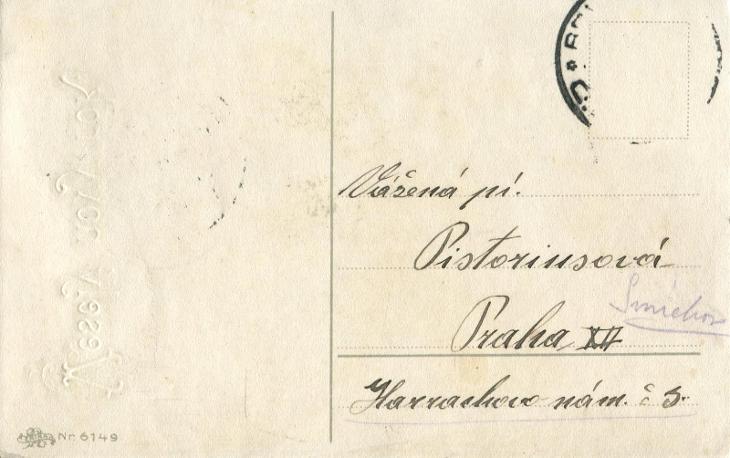 Vážená pí.
Pistoriusová
Smíchov
Praha
Harrachovo nám. č 5.
Nr. 6149